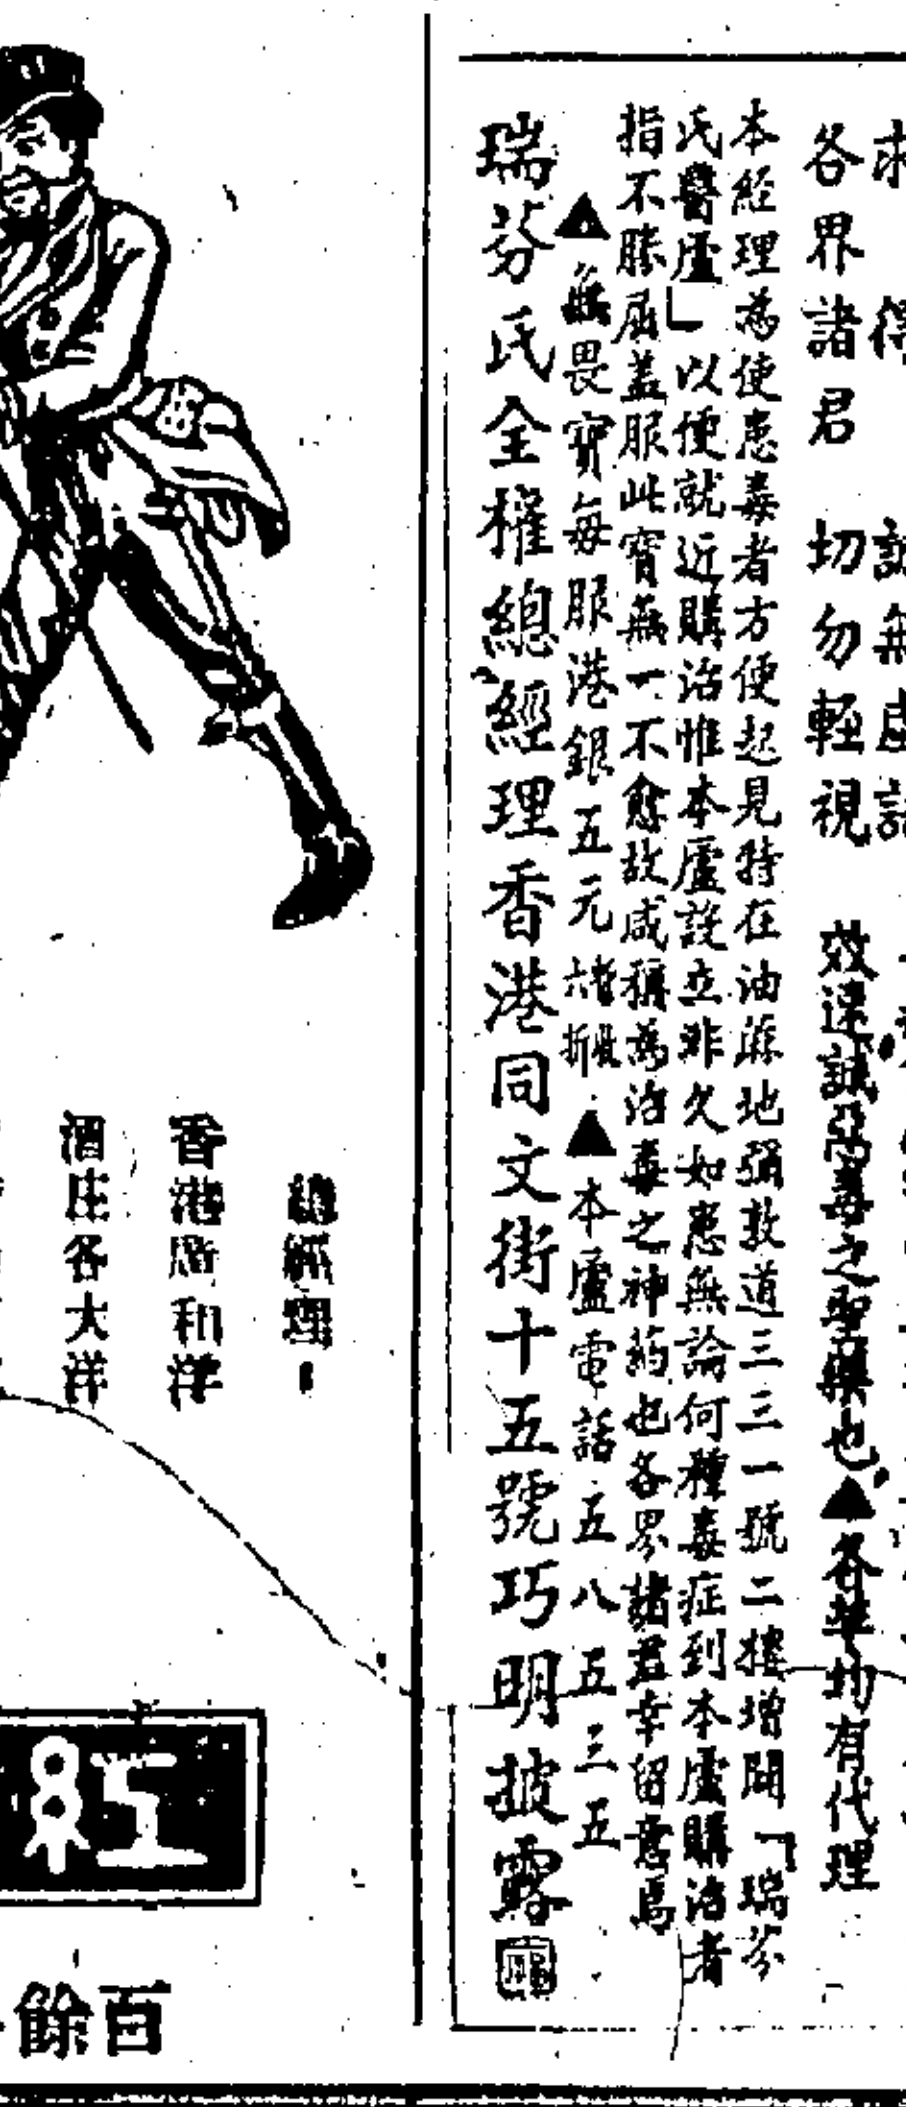 各界諸君　切勿輕視　效速誠惡毒之聖藥也▲各埠均有代理
本經理為使患毒者方便起見特在油蔴地彌敦道三三一號二樓增開「瑞芬
氏醫廬」以便就近購治惟本廬設立非久如患無論何種毒症到本廬購治者
指不勝屈蓋服此寶無一不愈故咸稱為治毒之神葯也各界諸君幸留意焉
▲無畏寶每服港銀五元　▲本廬電話五八五三五
瑞芬氏全權總經理香港同文街十五號巧明披露
總經理
香港 和洋
酒庄各大洋
紅
百餘